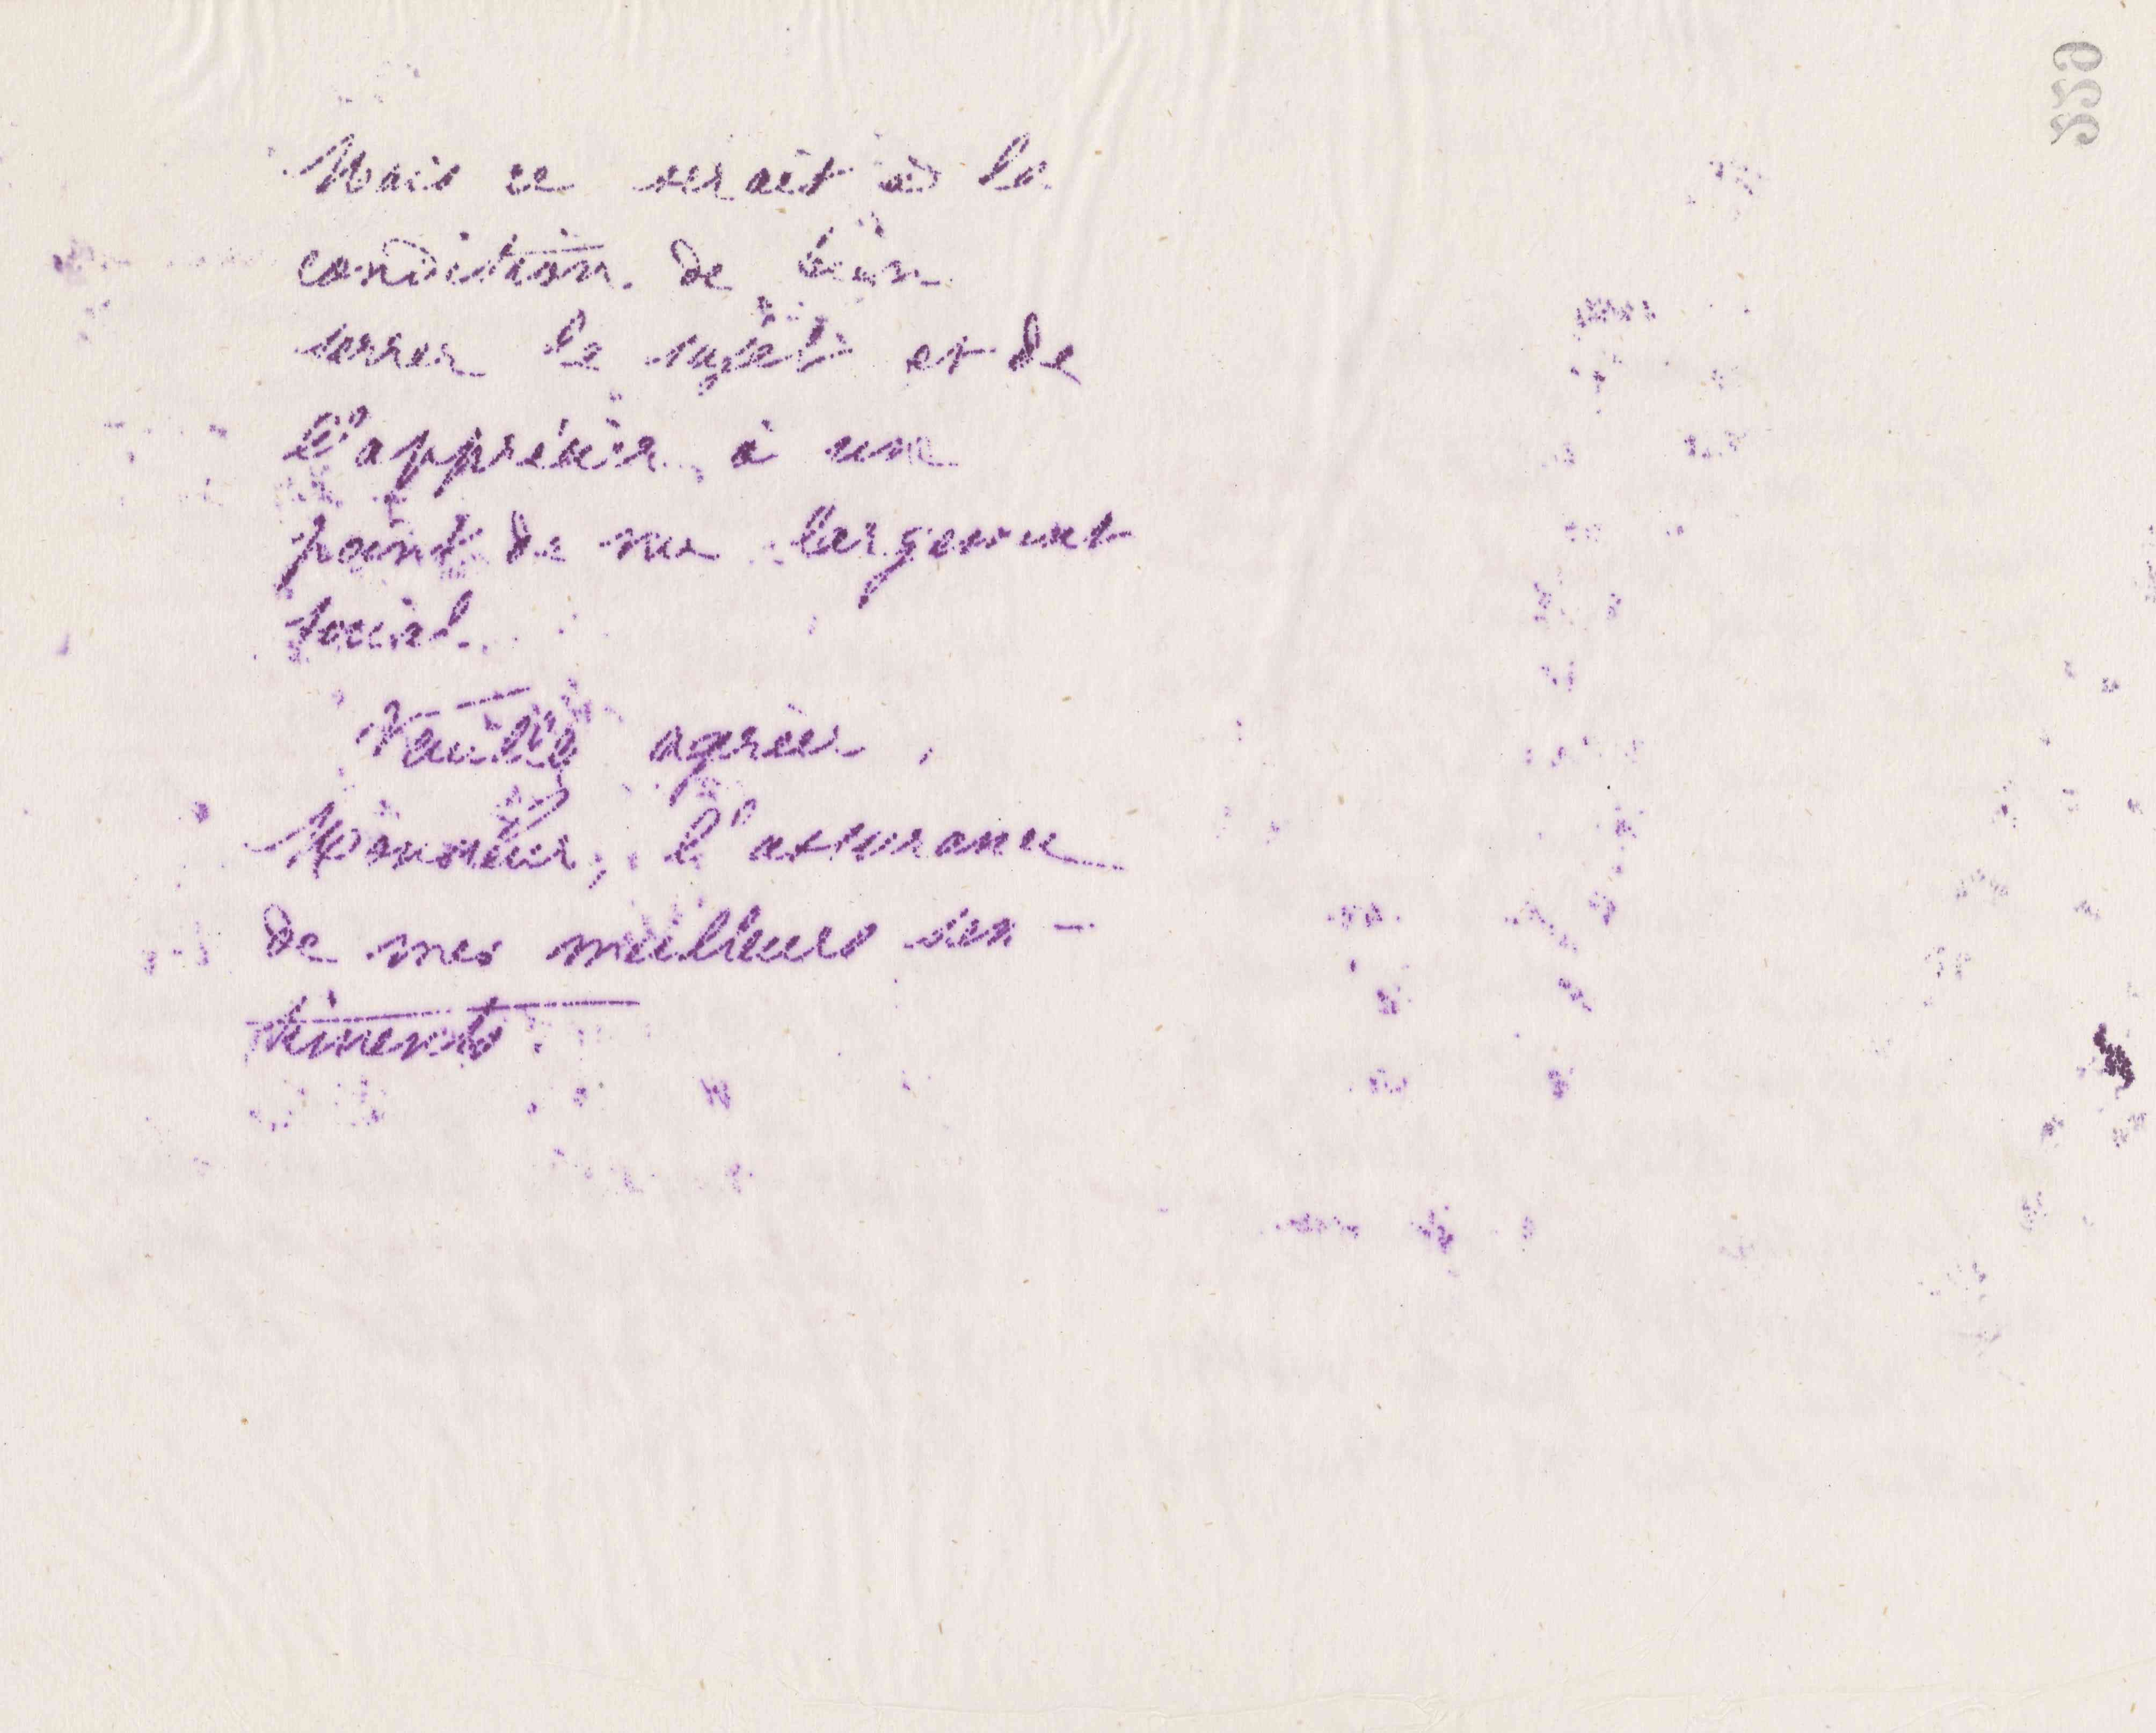 Mais ce serait à la
condition de bien
serrer le sujet et de
l'apprécier à un
point de vue largement
social.
Veuillez agréer,
Monsieur, l'assurance
de mes meilleurs sen-
timents.